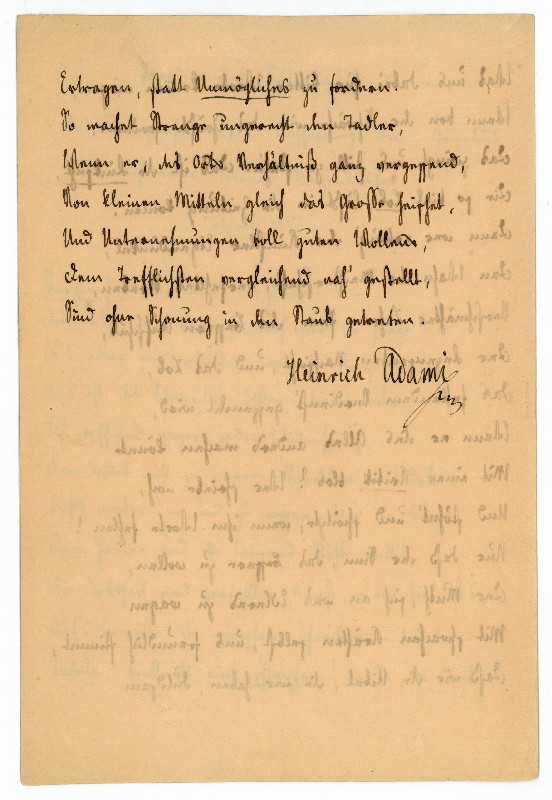 Ertragen, statt Unmögliches zu fordern.
So machet Strenge ungerecht den Tadler,
Wenn er, des Orts Verhältniß ganz vergessend,
Von kleinen Mitteln gleich das Große heischet,
Und Unternehmungen voll guten Wollens,
Dem Trefflichsten vergleichend nah' gestellt,
Sind ohne Schonung in den Staub getreten.
Heinrich Adami